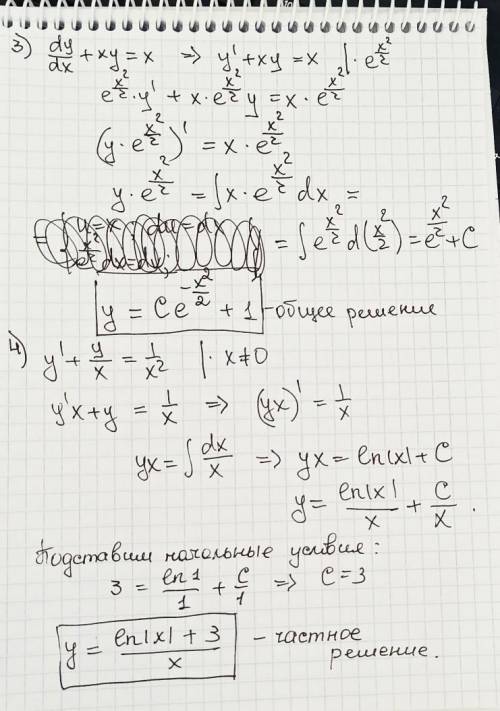 3) dy/dx + xy = x ⇒ y' + xy = x |· e^(x²/2)
e^(x²/2) · y' + x · e^(x²/2) y = x · e^(x²/2)
(y · e^(x²/2))' = x · e^(x²/2)
y · e^(x²/2) = ∫ x · e^(x²/2) dx =
= ∫ e^(x²/2) d(x²/2) = e^(x²/2) + C
y = Ce^(-x²/2) + 1 - общее решение
4) y' + y/x = 1/x² |· x ≠ 0
y'x + y = 1/x ⇒ (yx)' = 1/x
yx = ∫ dx/x ⇒ yx = ln|x| + C
y = ln|x|/x + C/x .
Подставим начальные условия:
3 = ln1/1 + C/1 ⇒ C = 3
y = (ln|x| + 3)/x - частное
решение.